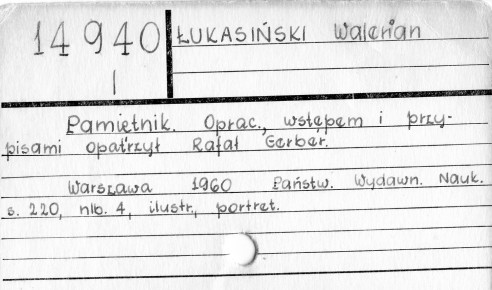 14940
I
ŁUKASIŃSKI Walerian
Pamiętnik. Oprac., wstępem i przy-
pisami opatrzył Rafał Gerber.
Warszawa 1960 Państw. Wydawn. Nauk.
s. 220, nlb. 4, ilustr., portret.